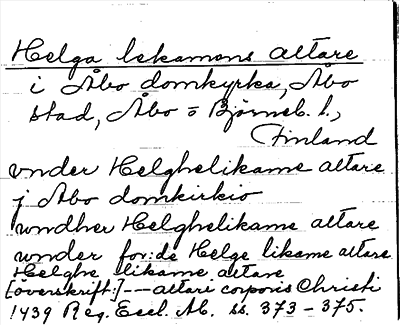 Helga lekamens altare
i Åbo domkyrka, Åbo
stad, Åbo o Björneb. l.,
Finland
vnder Helghelikame altare
j Åbo domkirkio
wndher Helghelikame altare
wnder for:de Helge likame altare
Helghe likame altare
[överskrift:] --- altari corporis Christi
1439 Reg. Eccl. Ab. ss. 373-375.